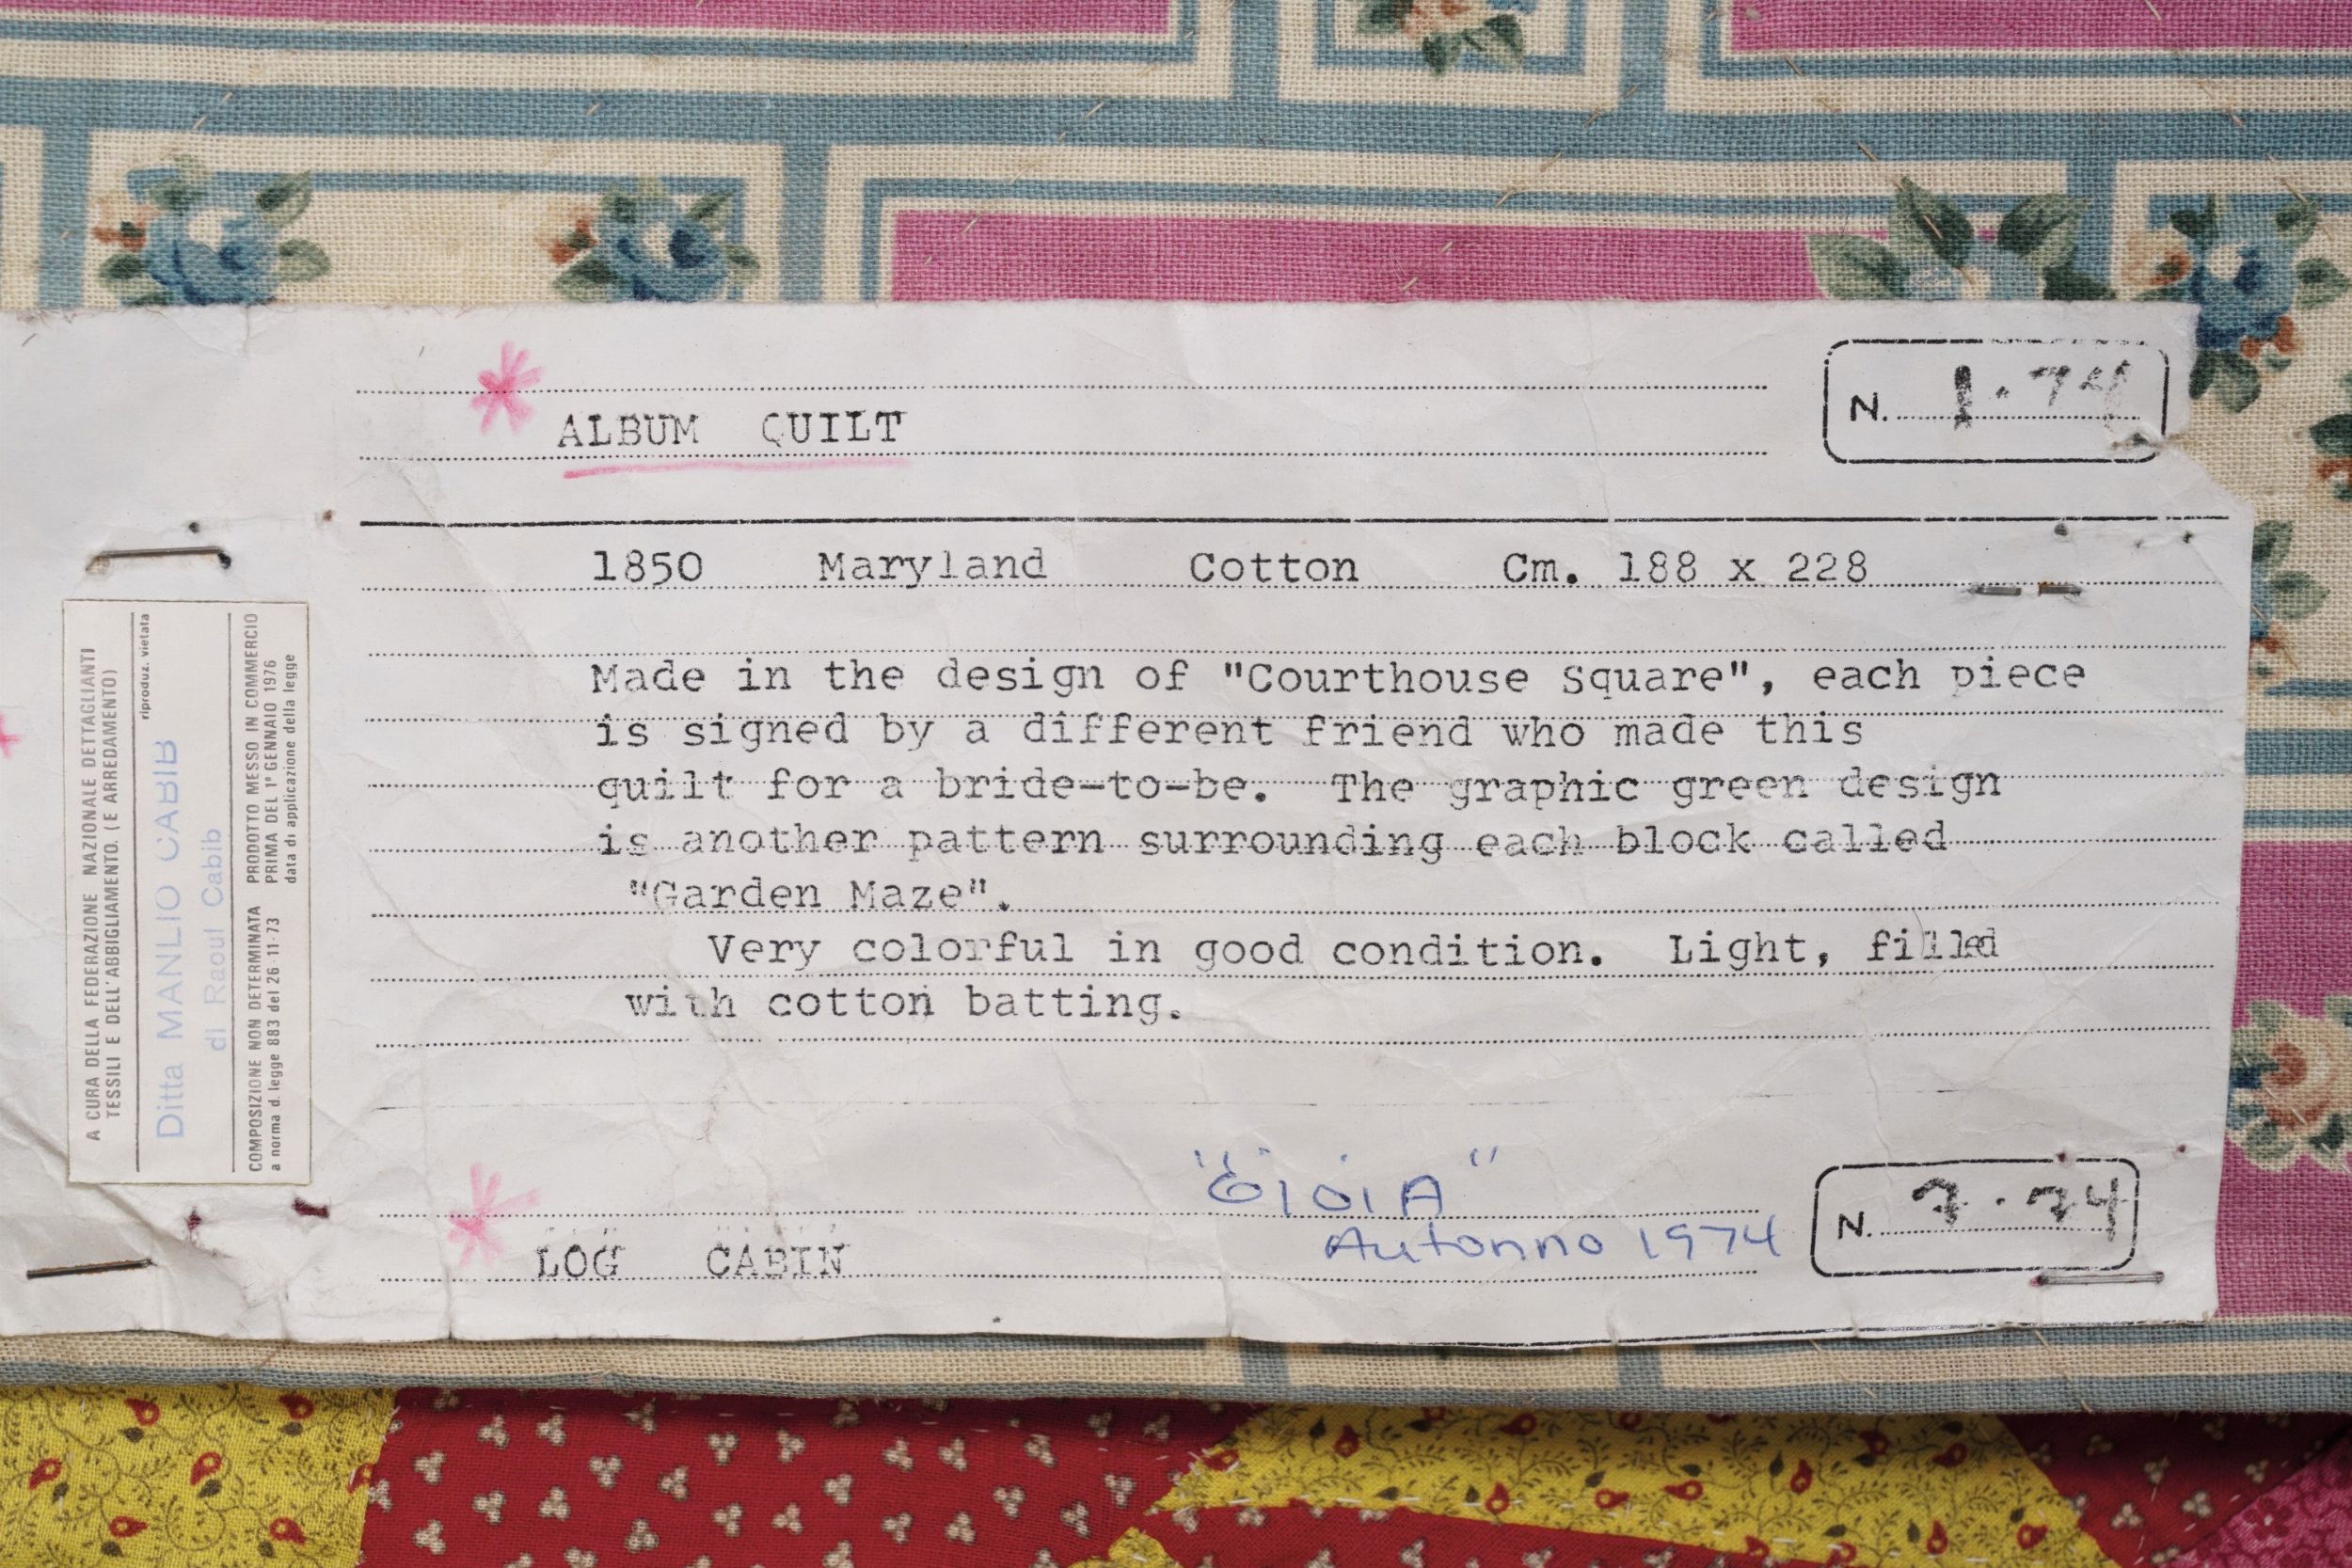 ALBUM QUILT
N. 1.74
1850 Maryland Cotton Cm. 188 x 228
Made in the design of "Courthouse Square", each piece
is signed by a different friend who made this
quilt for a bride-to-be. The graphic green design
is another pattern surrounding each block called
"Garden Maze".
Very colorful in good condition. Light, filled
with cotton batting.
"GIOIA"
Autonno 1974
LOG CABIN
N. 7.74
A CURA DELLA FEDERAZIONE NAZIONALE DETTAGLIANTI
TESSILI E DELL'ABBIGLIAMENTO. (E ARREDAMENTO)
riproduz. vietata
Ditta MANLIO CABIB
di Raoul Cabib
COMPOSIZIONE NON DETERMINATA
a norma d. legge 883 del 26-11-73
PRODOTTO MESSO IN COMMERCIO
PRIMA DEL 1° GENNAIO 1976
data di applicazione della legge